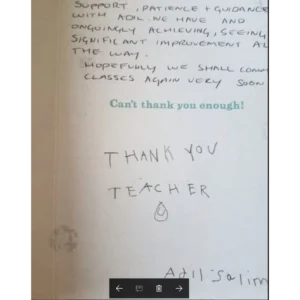 SUPPORT, PATIENCE + GUIDANCE
WITH ADIL. WE HAVE AND
ONGOINGLY ACHIEVING, SEEING
SIGNIFICANT IMPROVEMENT AL
THE WAY.
HOPEFULLY WE SHALL COMM
CLASSES AGAIN VERY SOON
Can't thank you enough!
THANK YOU
TEACHER
Adil Salim